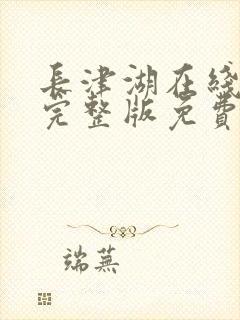 長津湖在綫
完整版免費
端蕪